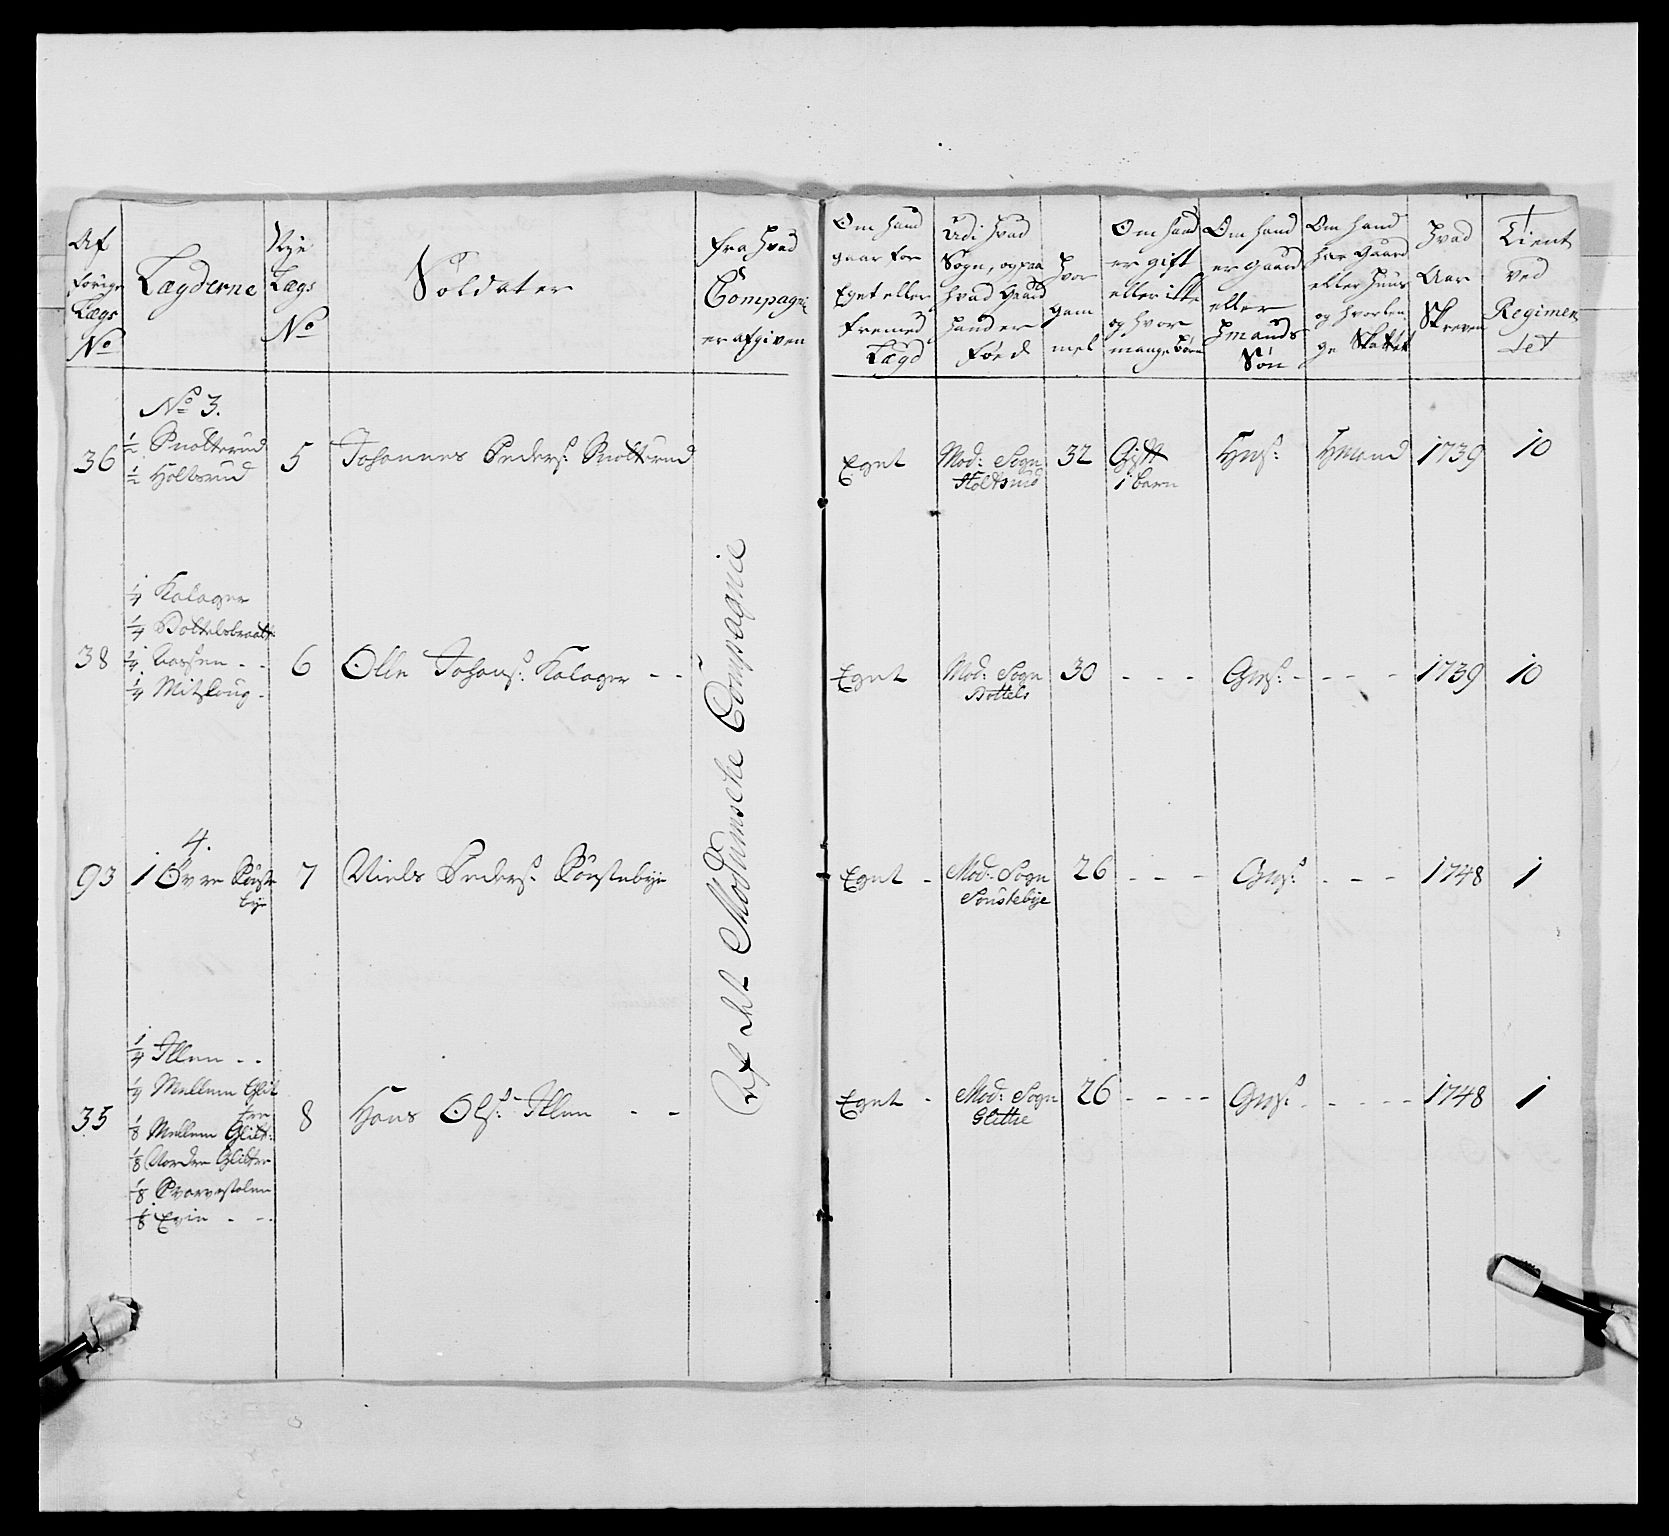 Af
forige
Lægs
No
Lægderne
Nye
Lægs
No
Soldater
fra hvad
Compagni
er afgiven
Om hand
gaar for
Eget eller
fremed
Lægd
Udi hvad
Sogn, og paa
hvad Gaard
hand er
føed
Hvor
gam
mel
Om hand
er gift
eller ikke
og hvor
mange børn
Om hand
er Gaard
eller
Hmands
Søn
Om hand
har Gaard
eller Huus
og hvorlen
ge Skattet
Hvad
Aar
Skreven
Tient
ved
Regimen
tet
No 3.
36
1/2
1/2 Holtsrud
5
Johannes Peders:
Eget
Mod: Sogn
Holtsrud
32
Gift
1 barn
Huus:
Hmand
1739
10
38
1/4 Kalager
1/4 Bottelsbraat:
1/4 Aasen - -
1/4 Mitskoug -
6
Olle Johans: Kalager - -
Eget
Mod: Sogn
Bottels
30
- - -
Gms:
- - - -
1739
10
4.
93
1 Øvre Sønste
bye
7
Niels Peders: Sønstebye
Eget -
Mod: Sogn
Sønstebye
26
- - -
Gms:
- - -
1748
1
35
1/4 Illen - -
1/4 Mellem Glit
ter
1/8 Mellem Glitt:
1/8 Nordre Glitter
1/8
1/8 Evie - -
8
Hans Ols: Illen - -
Eget -
Mod: Sogn
Glittre
26
- - - -
Gms:
- - - - -
1748
1
Af Det Modumske Compagnie